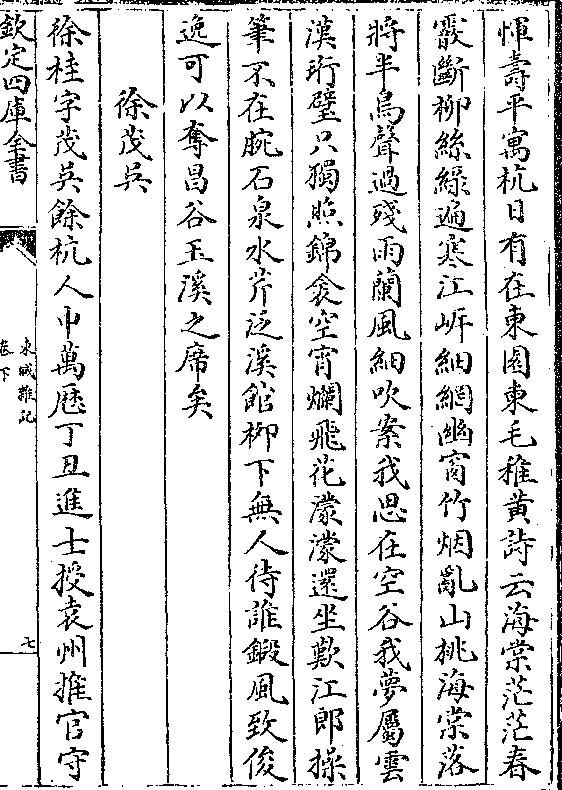 惲壽平寓杭日有在東園柬毛稚黄詩云海棠茫茫春
霞斷柳絲緑遍寒江㟁細網幽窗竹烟亂山桃海棠落
將半鳥聲過殘雨蘭風細吹案我思在空谷我夢屬雲
漢珩璧只獨照錦衾空宵爛飛花濛濛還坐歎江郎操
筆不在腕石泉水芹泛溪館柳下無人待誰鍛風致俊
逸可以奪昌谷玉溪之席矣
徐茂吳
徐桂字茂吳餘杭人中萬厯丁丑進士授袁州推官守
欽定四庫全書
東城雜記
卷下
七